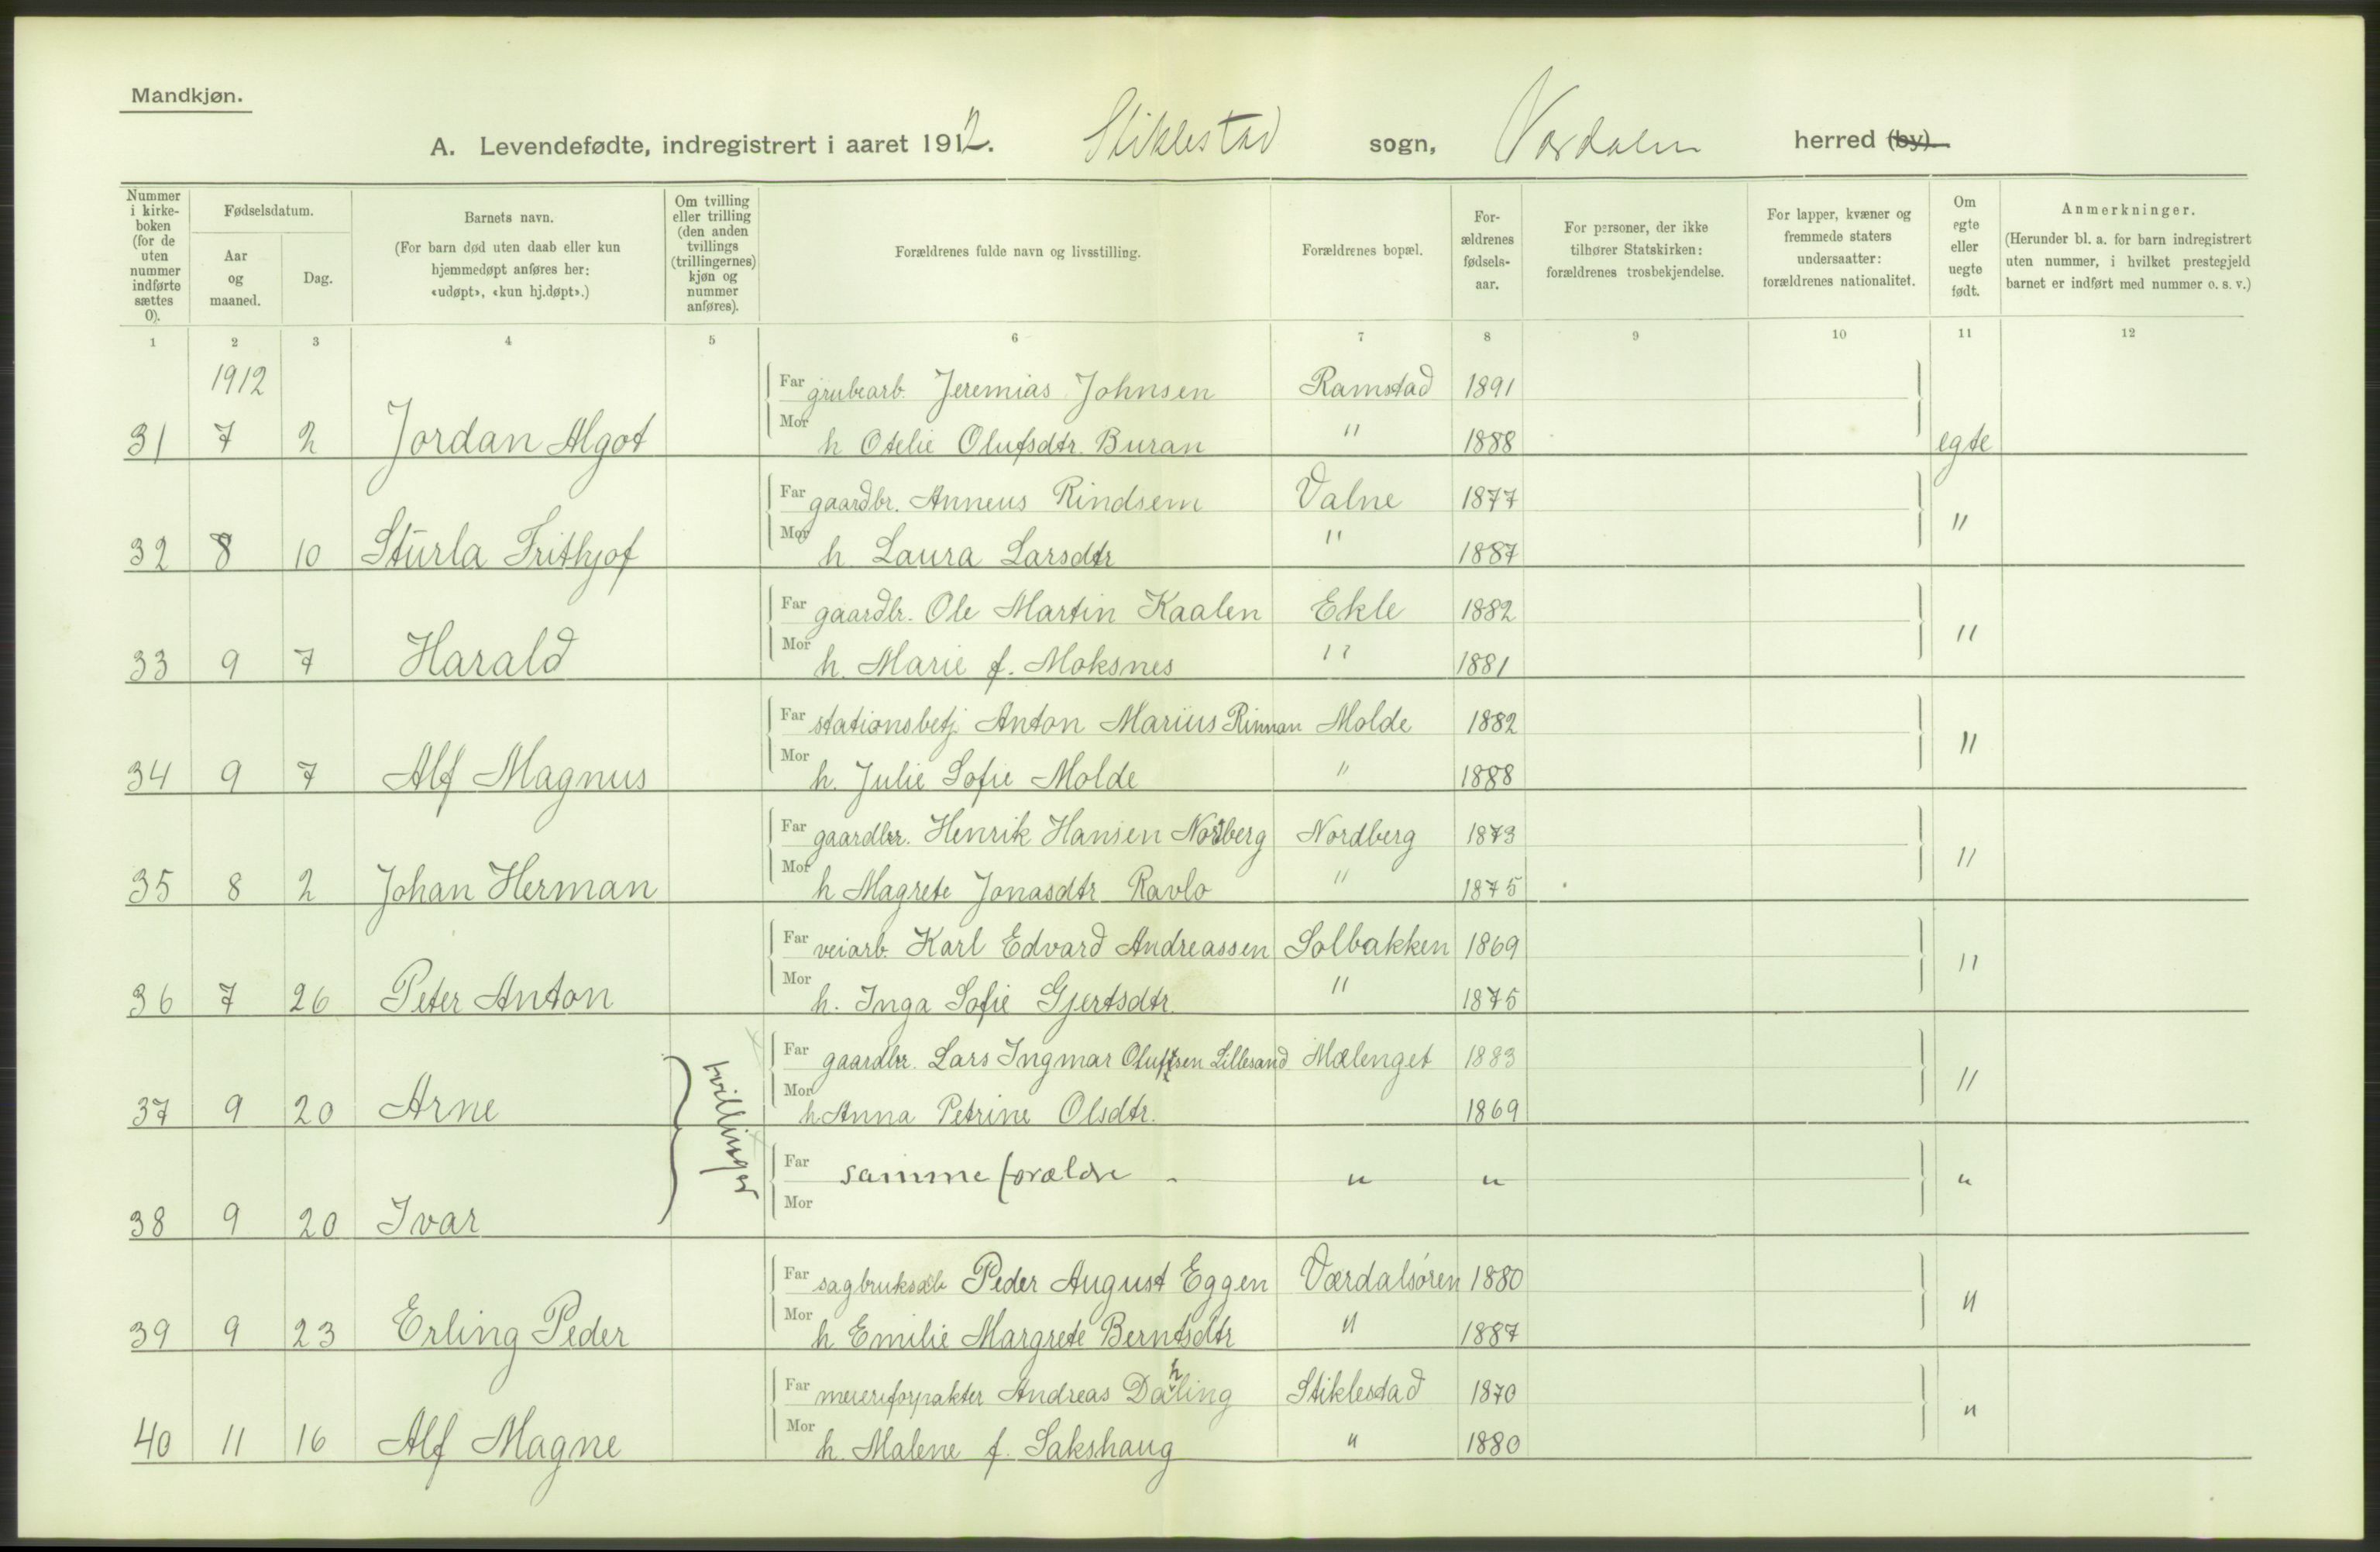 Mandkjøn.
A. Levendefødte, indregistrert i aaret 1912. Stiklestad sogn, Værdalen herred (by)
Nummer i kirke-boken (for de uten nummer indførte sættes 0).
Fødselsdatum.
Aar og maaned.
Dag.
Barnets navn.
(For barn død uten daab eller kun hjemmedøpt anføres her: «udøpt», «kun hj.døpt».)
Om tvilling eller trilling (den anden tvillings (trillingernes) kjøn og nummer anføres).
Forældrenes fulde navn og livsstilling.
Forældrenes bopæl.
For-ældrenes fødsels-aar.
For personer, der ikke tilhører Statskirken: forældrenes trosbekjendelse.
For lapper, kvæner og fremmede staters undersaatter: forældrenes nationalitet.
Om egte eller uegte født.
Anmerkninger.
(Herunder bl. a. for barn indregistrert uten nummer, i hvilket prestegjeld barnet er indført med nummer o. s. v.)
1 2 3 4 5 6 7 8 9 10 11 12
1912
Far grubearb. Jeremias Johnsen Ramstad 1891
31 7 2 Jordan Algot Mor h Otelie Olufsdtr. Buran " 1888 egte
Far gaardbr. Anneus Rindsem Valne 1877
32 8 10 Sturla Frithjof Mor h. Laura Larsdtr " 1887 "
Far gaardbr. Ole Martin Kaalen Ekle 1882
33 9 7 Harald Mor h. Marie f. Moksnes " 1881 "
Far stationsbetj. Anton Marius Rinnan Molde 1882
34 9 7 Alf Magnus Mor h. Julie Sofie Molde " 1888 "
Far gaardbr. Henrik Hansen Nordberg Nordberg 1873
35 8 2 Johan Herman Mor h Magrete Jonasdtr Ravlo " 1875 "
Far veiarb. Karl Edvard Andreassen Solbakken 1869
36 7 26 Peter Anton Mor h. Inga Sofie Gjertsdtr. " 1875 "
Far gaardbr. Lars Ingmar Olufsen Lillesand Mælenget 1883
37 9 20 Arne tvillinger Mor h Anna Petrine Olsdtr. 1869 "
Far samme forældre - " " "
38 9 20 Ivar Mor
Far sagbruksarb Peder August Eggen Værdalsøren 1880
39 9 23 Erling Peder Mor h Emilie Margrete Berntsdtr " 1887 "
Far meieriforpakter Andreas Dahling Stiklestad 1870
40 11 16 Alf Magne Mor h. Malene f. Sakshaug " 1880 "